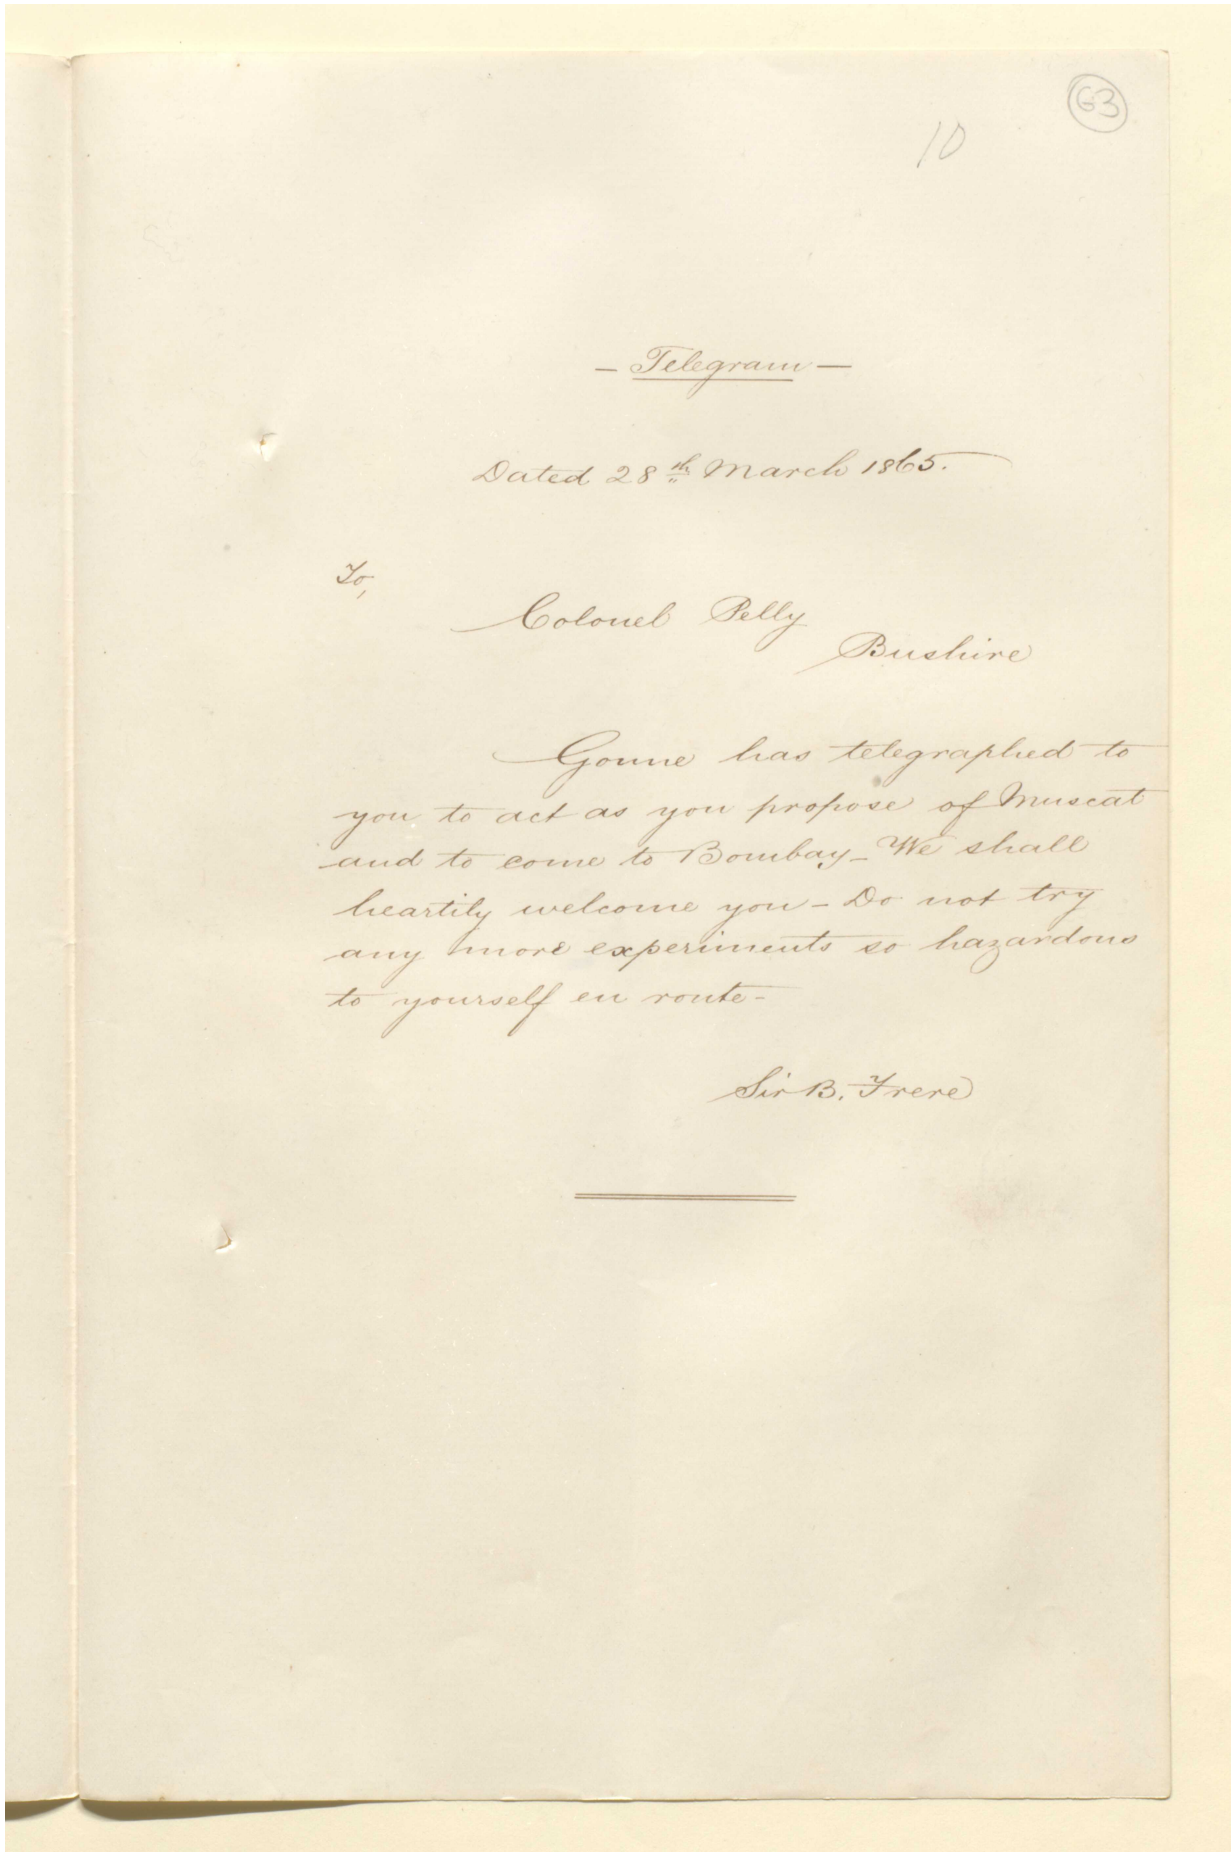 63
10
— Telegram —
Dated 28th March 1865.
To,
Colonel Pelly
Bushire
Gonne has telegraphed to
you to act as you propose of Muscat
and to come to Bombay_ We shall
heartily welcome you – Do not try
any more experiments so hazardous
to yourself en route –
Sir B. Frere